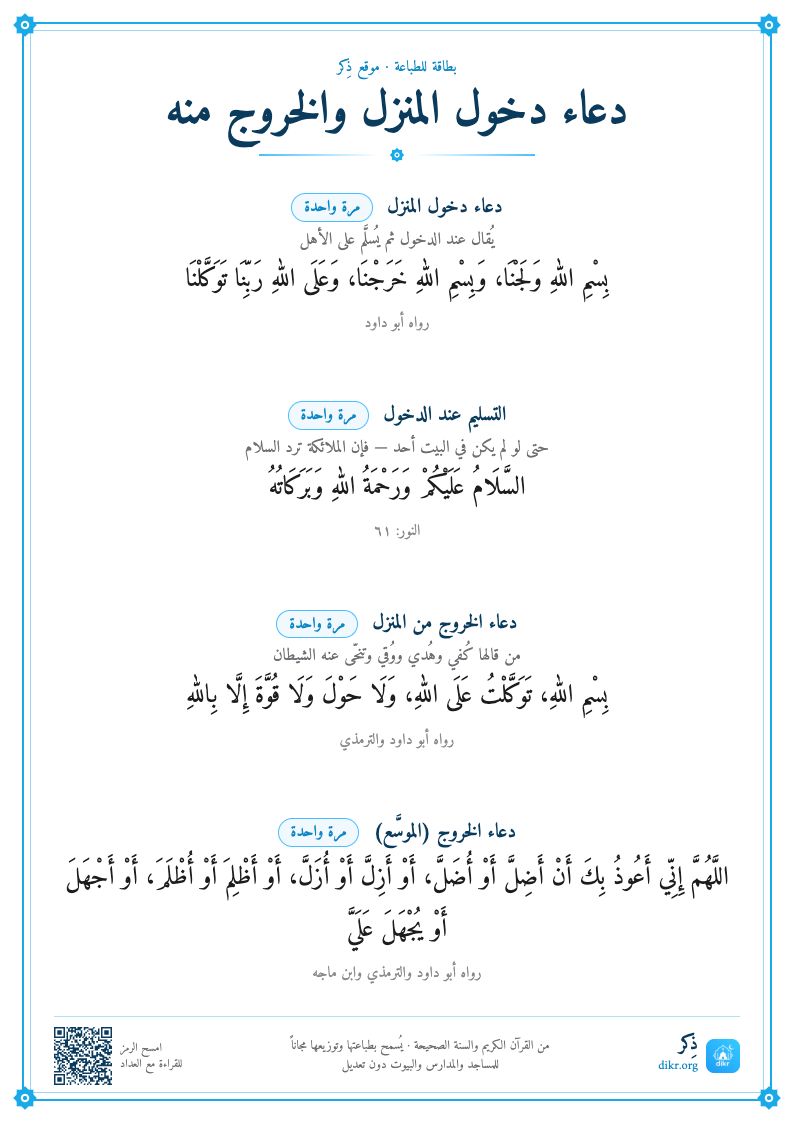 بطاقة للطباعة · موقع ذِكر
دعاء دخول المنزل والخروج منه
دعاء دخول المنزل مرة واحدة
يُقال عند الدخول ثم يُسلَّم على الأهل
بِسْمِ اللهِ وَلَجْنَا، وَبِسْمِ اللهِ خَرَجْنَا، وَعَلَى اللهِ رَبِّنَا تَوَكَّلْنَا
رواه أبو داود
التسليم عند الدخول مرة واحدة
حتى لو لم يكن في البيت أحد — فإن الملائكة ترد السلام
السَّلَامُ عَلَيْكُمْ وَرَحْمَةُ اللهِ وَبَرَكَاتُهُ
النور: ٦١
دعاء الخروج من المنزل مرة واحدة
من قالها كُفي وهُدي ووُقي وتنحّى عنه الشيطان
بِسْمِ اللهِ، تَوَكَّلْتُ عَلَى اللهِ، وَلَا حَوْلَ وَلَا قُوَّةَ إِلَّا بِاللهِ
رواه أبو داود والترمذي
دعاء الخروج (الموسَّع) مرة واحدة
اللَّهُمَّ إِنِّي أَعُوذُ بِكَ أَنْ أَضِلَّ أَوْ أُضَلَّ، أَوْ أَزِلَّ أَوْ أُزَلَّ، أَوْ أَظْلِمَ أَوْ أُظْلَمَ، أَوْ أَجْهَلَ
أَوْ يُجْهَلَ عَلَيَّ
رواه أبو داود والترمذي وابن ماجه
dikr
ذِكر
dikr.org
من القرآن الكريم والسنة الصحيحة · يُسمح بطباعتها وتوزيعها مجاناً
للمساجد والمدارس والبيوت دون تعديل
امسح الرمز
للقراءة مع العداد